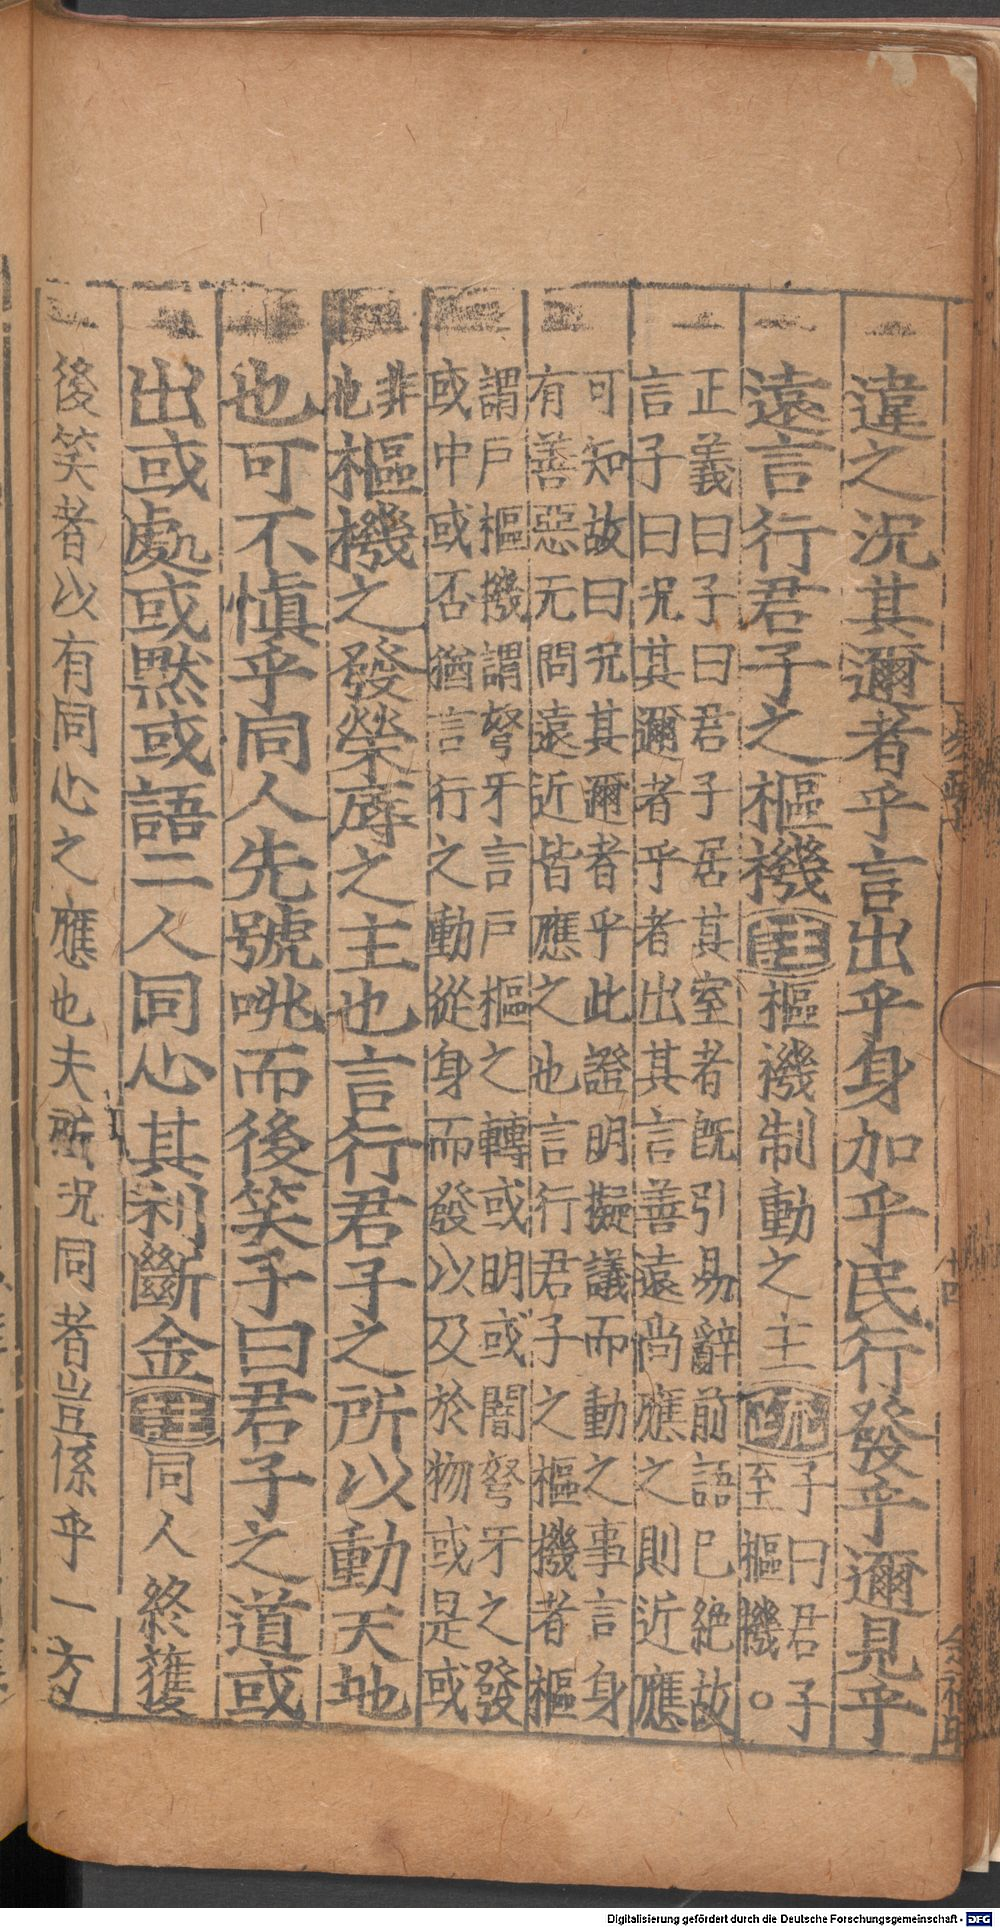 違之況其邇者乎言出乎身加乎民行發乎邇見乎
遠言行君子之樞機註樞機制動之主疏子曰君子
至樞機○
正義曰子曰君子居其室者既引易辭前語已絶故
言子曰況其邇者乎者出其言善遠尚應之則近應
可知故曰况其邇者乎此證明擬議而動之事言身
有善惡无問遠近皆應之也言行君子之樞機者樞
謂戶樞機謂弩牙言戶樞之轉或明或闇弩牙之發
或中或否猶言行之動從身而發以及於物或是或
非
也樞機之發榮辱之主也言行君子之所以動天地
也可不慎乎同人先號咷而後笑子曰君子之道或
出或處或默或語二人同心其利斷金註同人終獲
後笑者以有同心之應也夫所況同者豈係乎一方
十四
余福旺
Digitalisierung gefördert durch die Deutsche Forschungsgemeinschaft - DFG